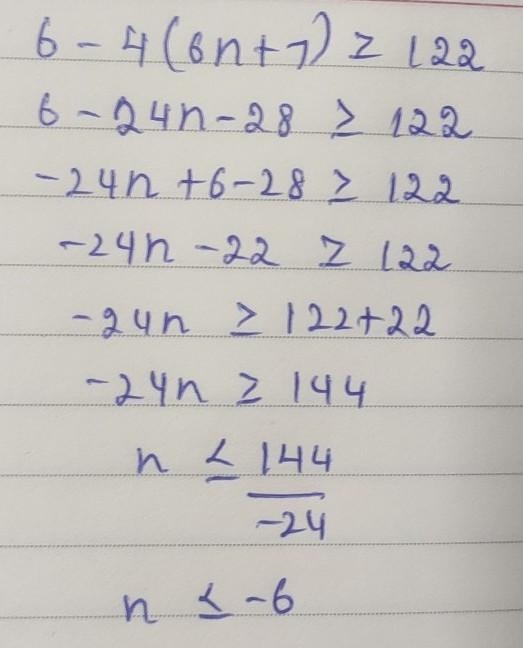 6 - 4(6n+7) ≥ 122
6 - 24n - 28 ≥ 122
-24n + 6 - 28 ≥ 122
-24n - 22 ≥ 122
-24n ≥ 122+22
-24n ≥ 144
n ≤ 144
-24
n ≤ -6